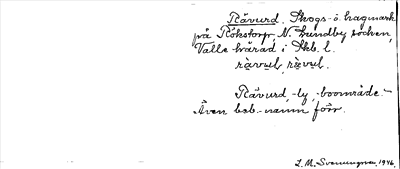 Rävurd. Skogs- o. hagmark
på Rökstorp, N. Lundby socken,
Valle härad i Skb. l.
rävul, rävul.
Rävurd, -ly, -boområde.-
Även beb.-namn förr.
L. M. Svenungsson, 1946.